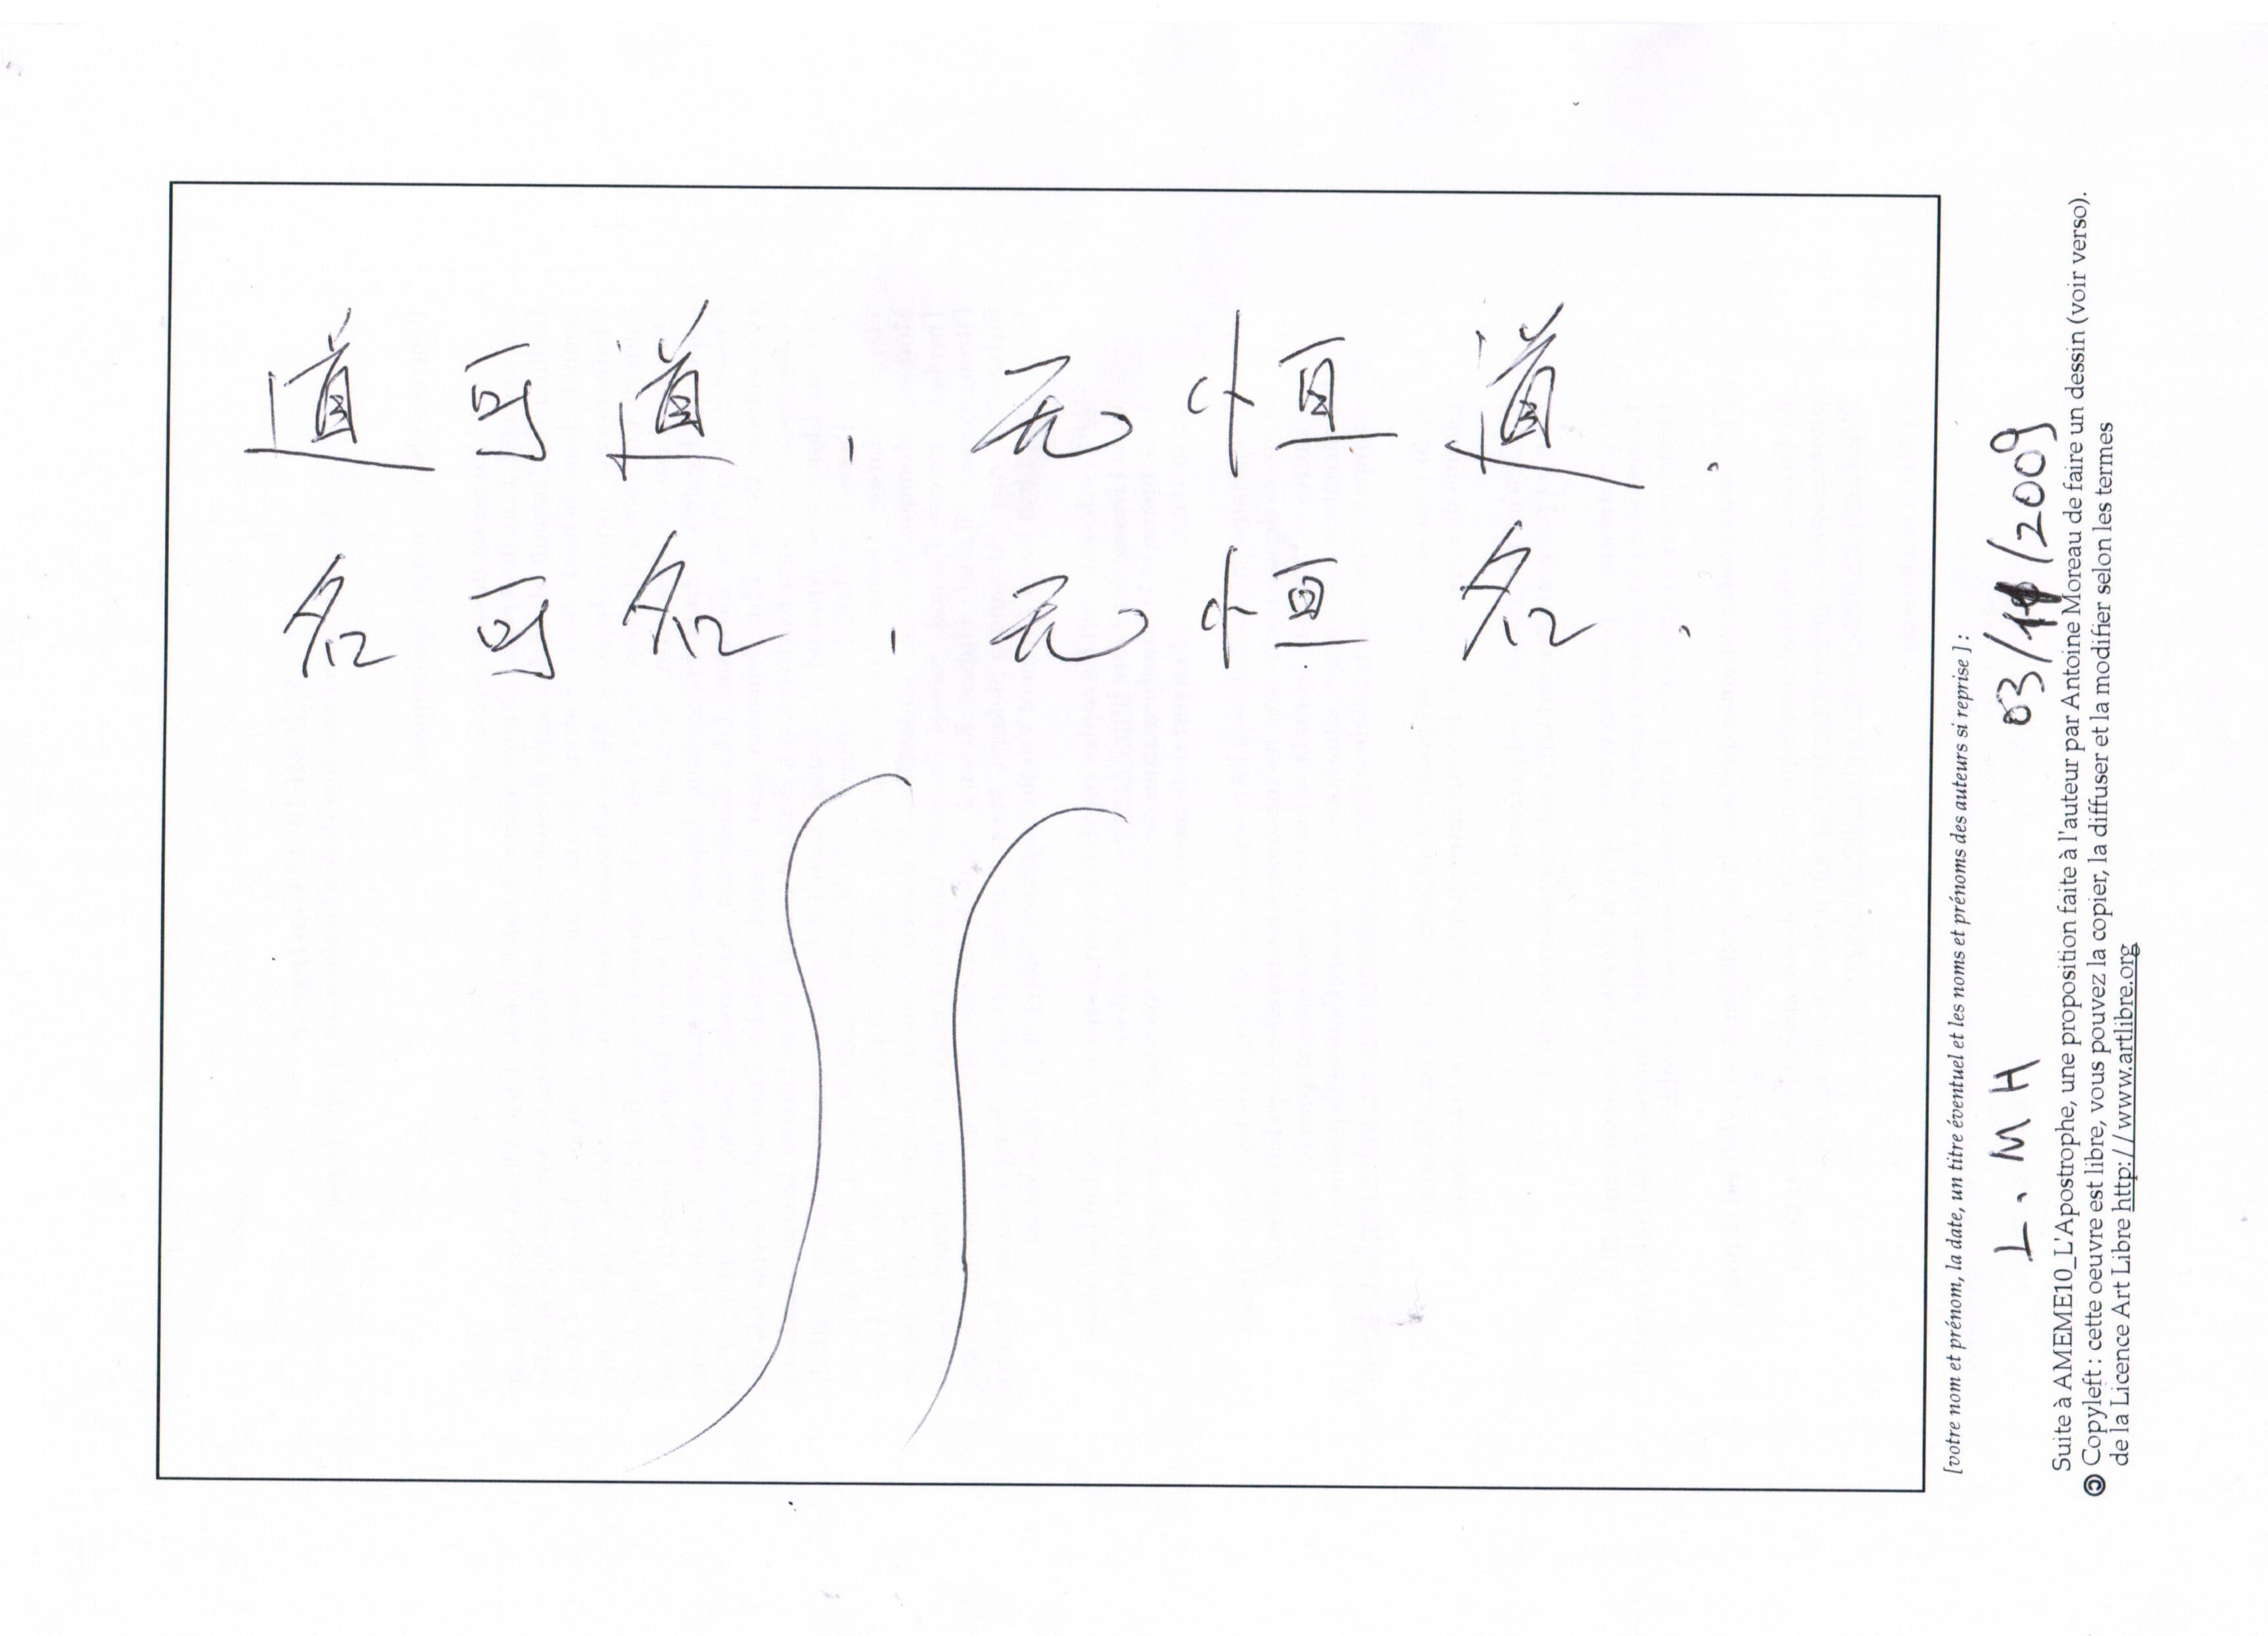 道可道，无恒道．
名可名，无恒名，
[votre nom et prénom, la date, un titre éventuel et les noms et prénoms des auteurs si reprise ] :
L. M H 03/11/2009
Suite à AMEME10_L'Apostrophe, une proposition faite à l'auteur par Antoine Moreau de faire un dessin (voir verso).
Copyleft : cette oeuvre est libre, vous pouvez la copier, la diffuser et la modifier selon les termes
de la Licence Art Libre http://www.artlibre.org